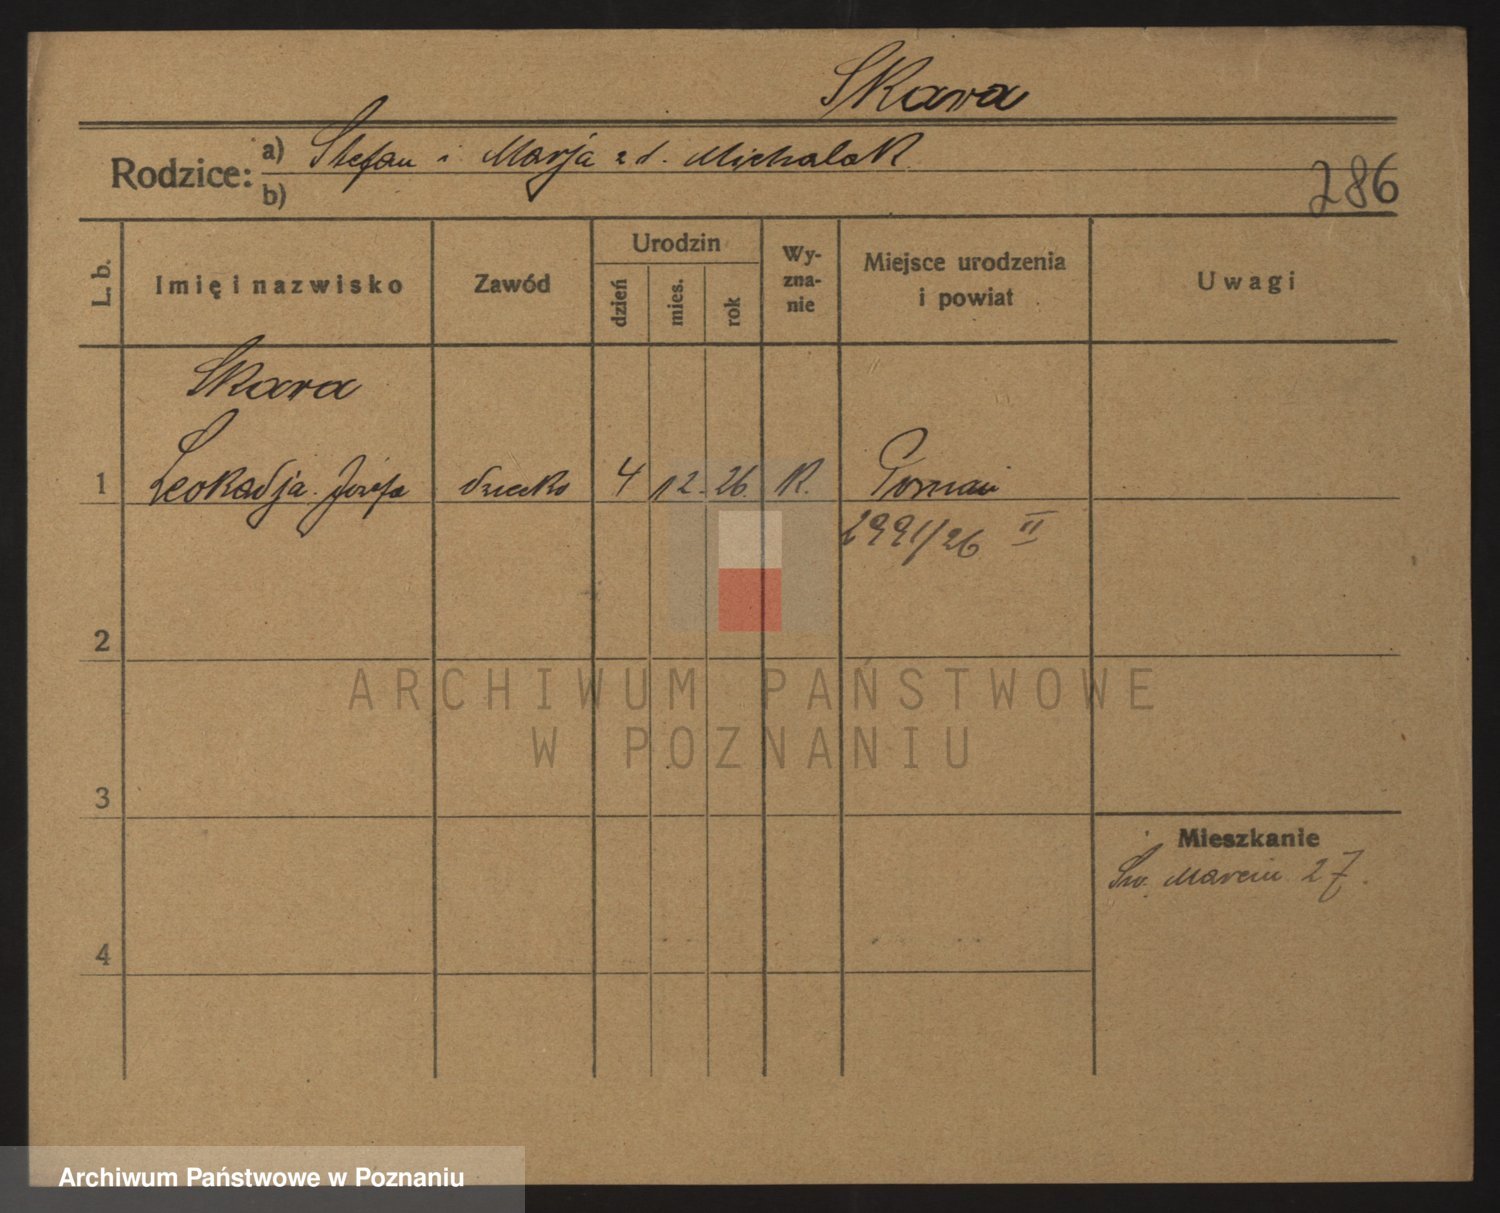 Skara
Rodzice: a) Stefan i Marja z d. Michalak
b)
286
L. b.
Imię i nazwisko
Zawód
Urodzin
dzień
mies.
rok
Wy-
zna-
nie
Miejsce urodzenia
i powiat
Uwagi
Skara
1 Leokadja Józefa dziecko 4 12. 26. K. Poznań
2991/26 II
2
ARCHIWUM PAŃSTWOWE
W POZNANIU
3
Mieszkanie
Św. Marcin 27.
4
Archiwum Państwowe w Poznaniu